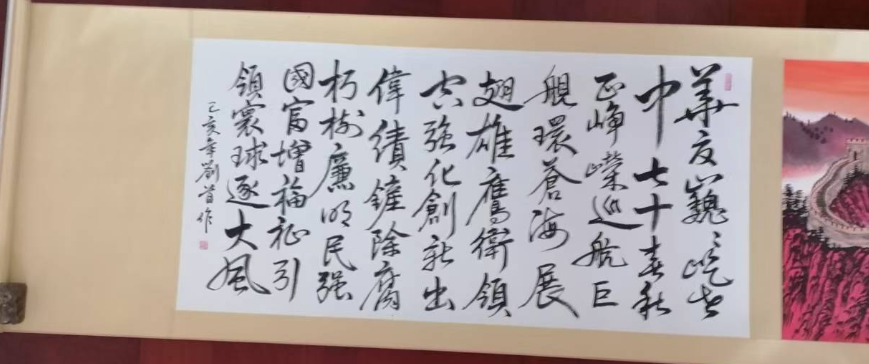 華夏巍巍屹世
中七十春秋
正峥嵘巡航巨
舰環蒼海展
翅雄鷹衛領
空强化創新出
偉績鏟除腐
朽樹廉明民强
國富增福祉引
領寰球逐大風
己亥年劉作